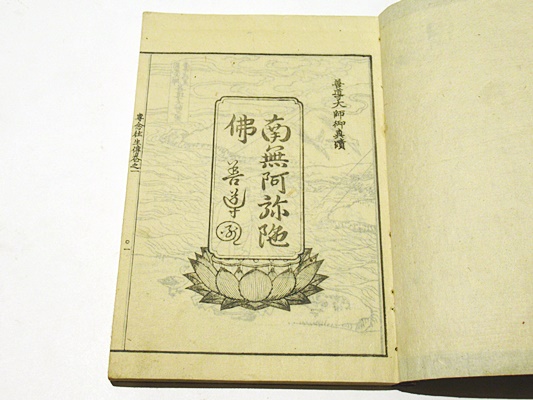 善導大師御真蹟
南無阿弥陀
佛
善導
専念往生傳巻之一